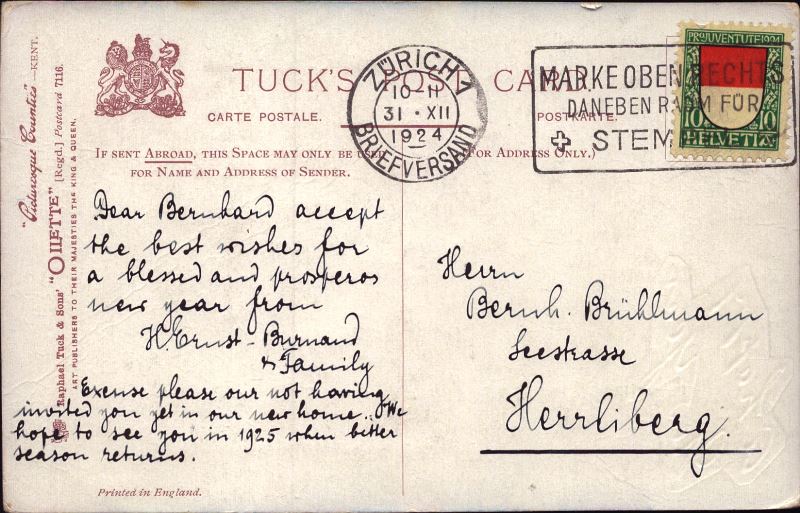 TUCK'S POST CARD
CARTE POSTALE.
POSTKARTE.
IF SENT ABROAD, THIS SPACE MAY ONLY BE USED
FOR NAME AND ADDRESS OF SENDER.
(FOR ADDRESS ONLY.)
ZÜRICH 1
10-11
31 · XII
1924
BRIEFVERSAND
MARKE OBEN RECHTS
DANEBEN RAUM FÜR
STEM
PRO JUVENTUTE 1924
10 10
HELVETIA
"Picturesque Counties"—KENT.
"OILETTE" [Regd.] Postcard 7116.
Raphael Tuck & Sons'
ART PUBLISHERS TO THEIR MAJESTIES THE KING & QUEEN.
Dear Bernhard accept
the best wishes for
a blessed and prosperos
new year from
H. Ernst-Burnand
& Family
Excuse please our not having
invited you yet in our new home. We
hope to see you in 1925 when better
season returns.
Herrn
Bernh. Brühlmann
Seestrasse
Herrliberg.
Printed in England.